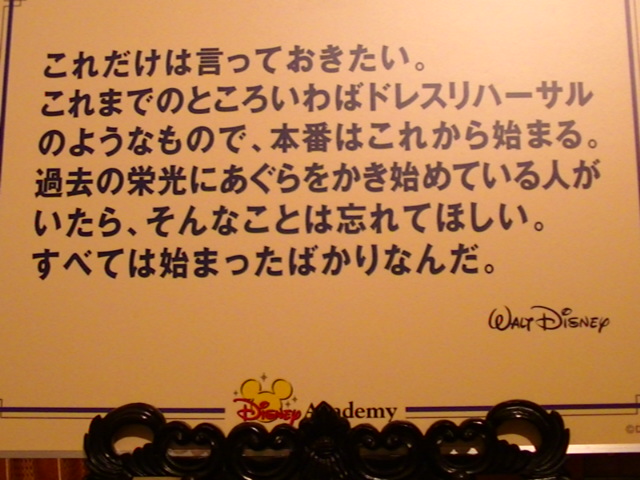 これだけは言っておきたい。
これまでのところいわばドレスリハーサル
のようなもので、本番はこれから始まる。
過去の栄光にあぐらをかき始めている人が
いたら、そんなことは忘れてほしい。
すべては始まったばかりなんだ。
WALT DISNEY
Disney Academy
©D